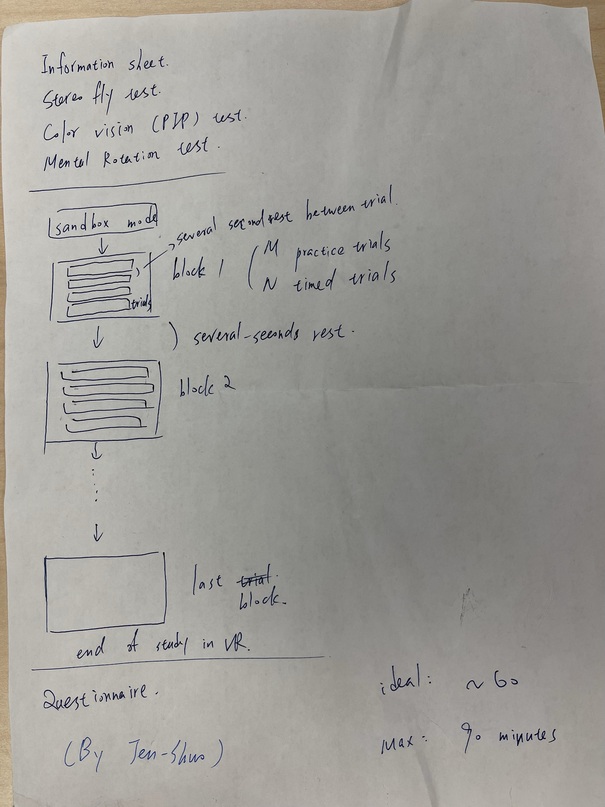 Information sheet.
Stereo fly test.
Color vision (PIP) test.
Mental Rotation test.
sandbox mode
several second rest between trial.
block 1
M practice trials
N timed trials
trials
several-seconds rest.
block 2
last trial.
block.
end of study in VR.
Questionnaire.
ideal: ~ 60
Max: 90 minutes
(By Jen-Shuo)